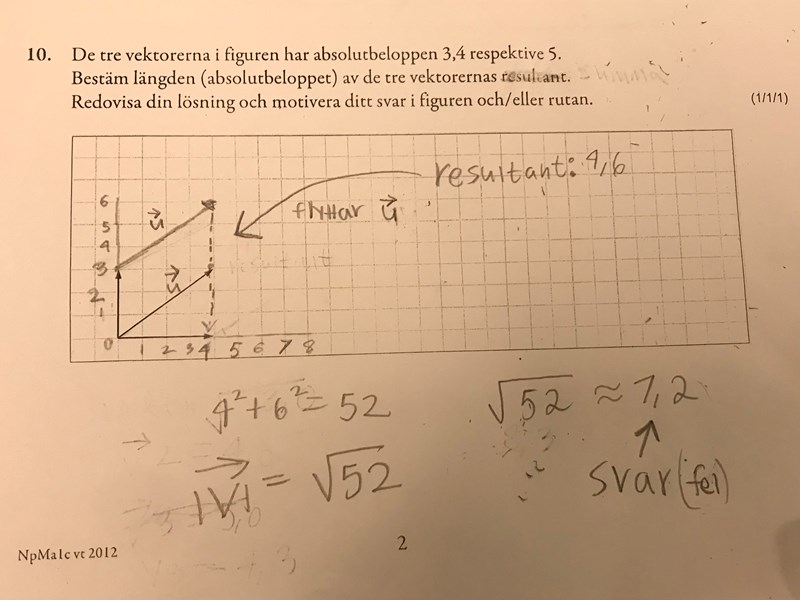 10. De tre vektorerna i figuren har absolutbeloppen 3,4 respektive 5.
Bestäm längden (absolutbeloppet) av de tre vektorernas resultant.
Redovisa din lösning och motivera ditt svar i figuren och/eller rutan.
(1/1/1)
resultant: 4,6
flyttar u
6
5
4
3
2
1
0
u
u
1 2 3 4 5 6 7 8
4² + 6² = 52
√52 ≈ 7,2
|V| = √52
svar (fel)
NpMa1c vt 2012
2